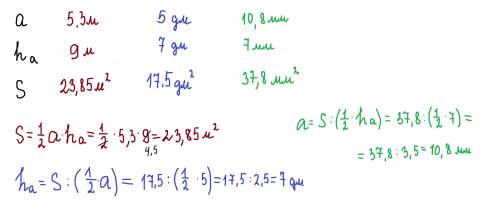 a 5,3м 5 дм 10,8 мм
hₐ 9 м 7 дм 7 мм
S 23,85 м² 17,5 дм² 37,8 мм²
S = 1/2 a hₐ = 1/2 · 5,3 · 9 = 23,85 м²
4,5
a = S : (1/2 · hₐ) = 37,8 : (1/2 · 7) =
= 37,8 : 3,5 = 10,8 мм
hₐ = S : (1/2 · a) = 17,5 : (1/2 · 5) = 17,5 : 2,5 = 7 дм